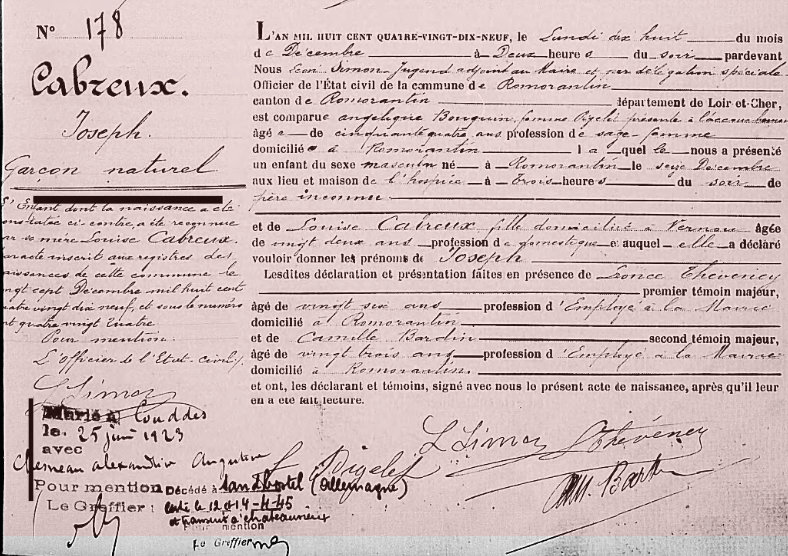 N° 178
Cabreux.
Joseph.
Garçon naturel
L'Enfant dont la naissance a été
constatée ci-contre, a été reconnue
par sa mère Louise Cabreux
par acte inscrit aux registres des
naissances de cette commune le
vingt sept Décembre mil huit cent
quatre vingt dix neuf, et sous le numéro
cent quatre vingt quatre.
Pour mention.
L'officier de l'Etat-civil,
L Simon
Marié à Couddes
le 25 juin 1923
avec
Alexandrine Augustine
Pour mention
Le Greffier :
L'AN MIL HUIT CENT QUATRE-VINGT-DIX-NEUF, le Lundi dix huit du mois
de Décembre à Deux heures du soir pardevant
Nous Léon Simon-Jugend adjoint au Maire et par délégation spéciale
Officier de l'État civil de la commune de Romorantin
canton de Romorantin département de Loir-et-Cher,
est comparue angélique Bourguin, femme présente à l'accouchement
âgée de cinquante quatre ans profession de sage-femme
domiciliée à Romorantin laquelle nous a présenté
un enfant du sexe masculin né à Romorantin le seize Décembre
aux lieu et maison de l'hospice à Trois heures du soir de
père inconnu
et de Louise Cabreux fille domiciliée à Vernou âgée
de vingt deux ans profession de domestique et auquel elle a déclaré
vouloir donner les prénoms de Joseph
Lesdites déclaration et présentation faites en présence de Léonce Theveney
premier témoin majeur,
âgé de vingt six ans profession d'Employé à la Mairie
domicilié à Romorantin
et de Camille Bardin second témoin majeur,
âgé de vingt trois ans profession d'Employé à la Mairie
domicilié à Romorantin
et ont, les déclarant et témoins, signé avec nous le présent acte de naissance, après qu'il leur
en a été fait lecture.
L Simon LTheveney
Décédé à Sandbostel (Allemagne)
entre le 12 et 14-4-45
et transcrit à chateauvieux
Pour mention
Le Greffier